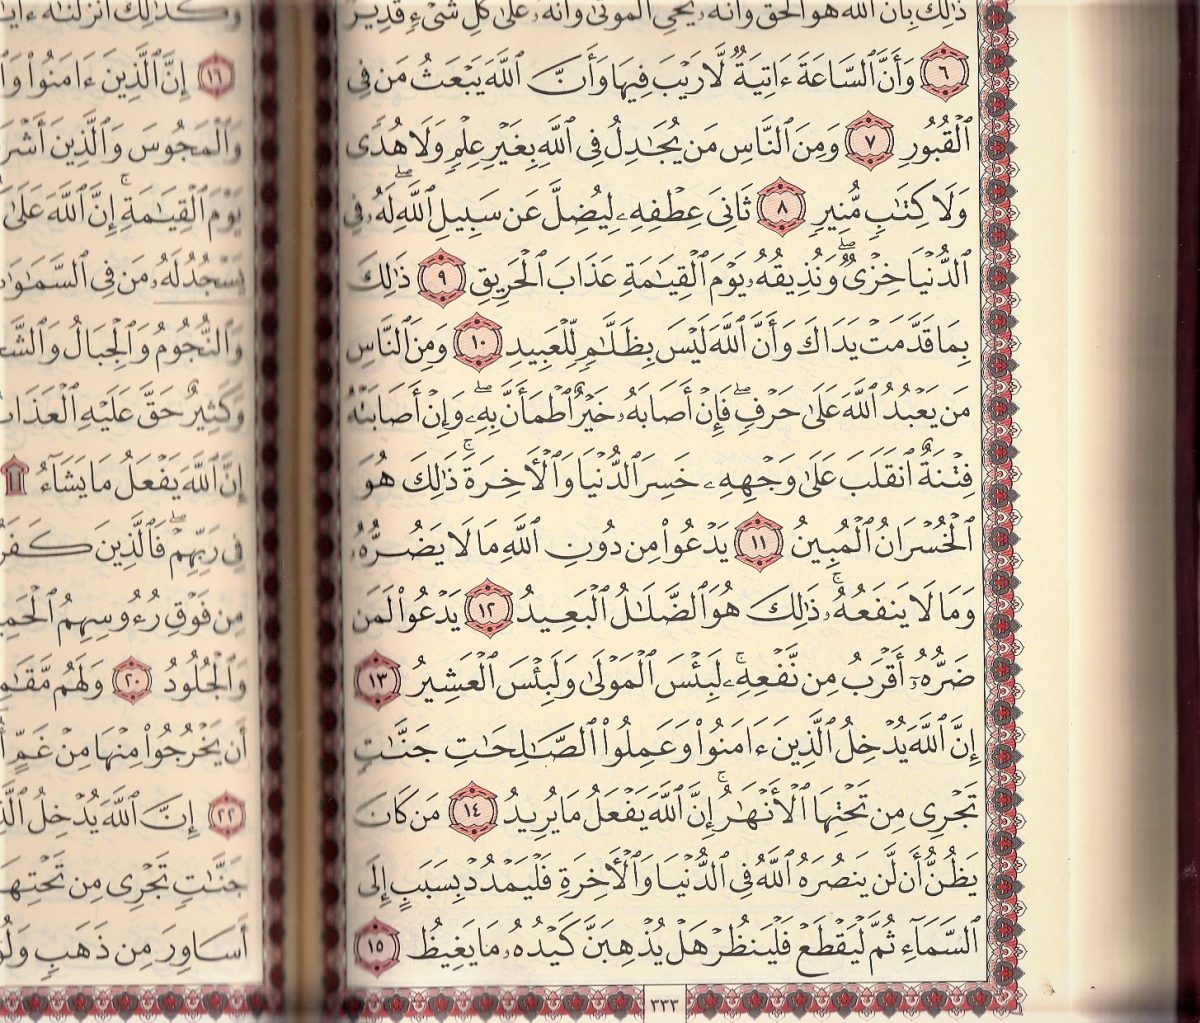 ذَٰلِكَ بِأَنَّ ٱللَّهَ هُوَ ٱلْحَقُّ وَأَنَّهُۥ يُحْىِ ٱلْمَوْتَىٰ وَأَنَّهُۥ عَلَىٰ كُلِّ شَىْءٍ قَدِيرٌ
٦ وَأَنَّ ٱلسَّاعَةَ ءَاتِيَةٌ لَّا رَيْبَ فِيهَا وَأَنَّ ٱللَّهَ يَبْعَثُ مَن فِى
ٱلْقُبُورِ ٧ وَمِنَ ٱلنَّاسِ مَن يُجَٰدِلُ فِى ٱللَّهِ بِغَيْرِ عِلْمٍ وَلَا هُدًى
وَلَا كِتَٰبٍ مُّنِيرٍ ٨ ثَانِىَ عِطْفِهِۦ لِيُضِلَّ عَن سَبِيلِ ٱللَّهِ ۖ لَهُۥ فِى
ٱلدُّنْيَا خِزْىٌ ۖ وَنُذِيقُهُۥ يَوْمَ ٱلْقِيَٰمَةِ عَذَابَ ٱلْحَرِيقِ ٩ ذَٰلِكَ
بِمَا قَدَّمَتْ يَدَاكَ وَأَنَّ ٱللَّهَ لَيْسَ بِظَلَّٰمٍ لِّلْعَبِيدِ ١٠ وَمِنَ ٱلنَّاسِ
مَن يَعْبُدُ ٱللَّهَ عَلَىٰ حَرْفٍ ۖ فَإِنْ أَصَابَهُۥ خَيْرٌ ٱطْمَأَنَّ بِهِۦ ۖ وَإِنْ أَصَابَتْهُ
فِتْنَةٌ ٱنقَلَبَ عَلَىٰ وَجْهِهِۦ خَسِرَ ٱلدُّنْيَا وَٱلْأَخِرَةَ ۚ ذَٰلِكَ هُوَ
ٱلْخُسْرَانُ ٱلْمُبِينُ ١١ يَدْعُوا۟ مِن دُونِ ٱللَّهِ مَا لَا يَضُرُّهُۥ
وَمَا لَا يَنفَعُهُۥ ۚ ذَٰلِكَ هُوَ ٱلضَّلَٰلُ ٱلْبَعِيدُ ١٢ يَدْعُوا۟ لَمَن
ضَرُّهُۥٓ أَقْرَبُ مِن نَّفْعِهِۦ ۚ لَبِئْسَ ٱلْمَوْلَىٰ وَلَبِئْسَ ٱلْعَشِيرُ ١٣
إِنَّ ٱللَّهَ يُدْخِلُ ٱلَّذِينَ ءَامَنُوا۟ وَعَمِلُوا۟ ٱلصَّٰلِحَٰتِ جَنَّٰتٍ
تَجْرِى مِن تَحْتِهَا ٱلْأَنْهَٰرُ ۚ إِنَّ ٱللَّهَ يَفْعَلُ مَا يُرِيدُ ١٤ مَن كَانَ
يَظُنُّ أَن لَّن يَنصُرَهُ ٱللَّهُ فِى ٱلدُّنْيَا وَٱلْأَخِرَةِ فَلْيَمْدُدْ بِسَبَبٍ إِلَى
ٱلسَّمَآءِ ثُمَّ لْيَقْطَعْ فَلْيَنظُرْ هَلْ يُذْهِبَنَّ كَيْدُهُۥ مَا يَغِيظُ ١٥
٣٣٣
وَكَذَٰلِكَ أَنزَلْنَٰهُ
١٦ إِنَّ ٱلَّذِينَ ءَامَنُوا۟
وَٱلْمَجُوسَ وَٱلَّذِينَ
يَوْمَ ٱلْقِيَٰمَةِ ۚ إِنَّ ٱللَّهَ عَلَىٰ
يَسْجُدُ لَهُۥ مَن فِى
وَٱلنُّجُومُ وَٱلْجِبَالُ
وَكَثِيرٌ حَقَّ عَلَيْهِ ٱلْعَذَابُ
إِنَّ ٱللَّهَ يَفْعَلُ مَا يَشَآءُ
فِى رَبِّهِمْ ۖ فَٱلَّذِينَ
مِن فَوْقِ رُءُوسِهِمُ
وَٱلْجُلُودُ ٢٠ وَلَهُم
أَن يَخْرُجُوا۟ مِنْهَا مِنْ غَمٍّ
٢٢ إِنَّ ٱللَّهَ يُدْخِلُ
جَنَّٰتٍ تَجْرِى مِن تَحْتِهَا
أَسَاوِرَ مِن ذَهَبٍ